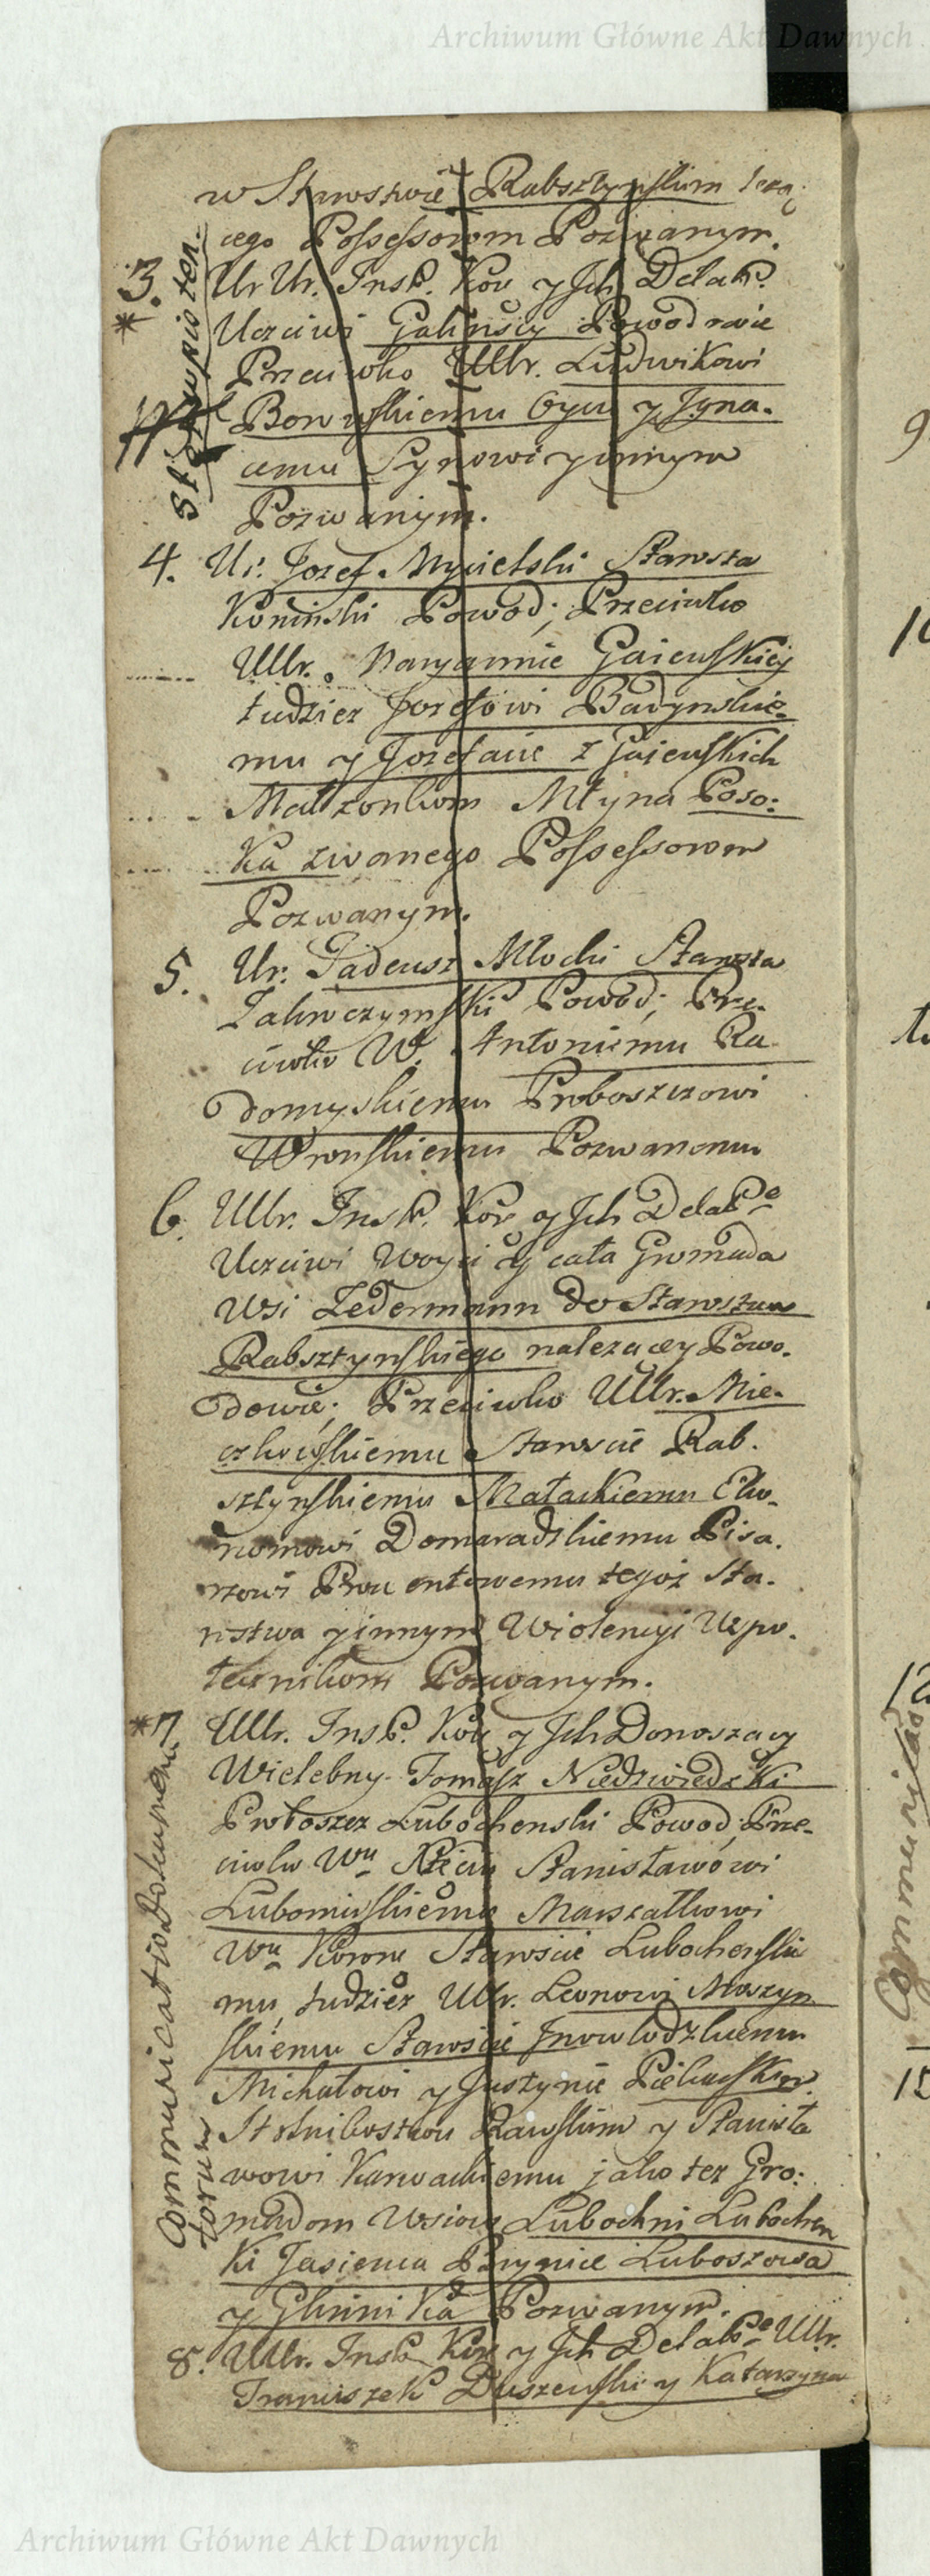 Archiwum Główne Akt Dawnych
w Starostwie Rabsztynskim leżą:
cego Possessorom Pozwanym.
3. Ur Ur. Inst. Kor y Jch Delat.
* Uczciwi Galinscy Powodowie
Przeciwko Ullr. Ludwikowi
Borowskiemu Oycu y Jgna-
cemu Synowi y innym
Pozwanym.
4. Ur. Jozef Mycielski Starosta
Koninski Powod; Przeciwko
Ullr. Maryannie Gaiewskiey
tudzież Jozefowi Badynskie-
mu y Jozefacie z Gaiewskich
Małżonkom Młyna Poso:
ka zwanego Possessorom
Pozwanym.
5. Ur. Tadeusz Młocki Starosta
Powod; Prze-
ciwko W. Antoniemu Ra
domyskiemu Proboszczowi
Wronskiemu Pozwanemu
6. Ullr. Inst. Kor y Jch Delat
Uczciwi Woyci y cała Gromada
Wsi Zedermann do Starostwa
Rabsztynskiego nalezacey Powo-
dowie; Przeciwko Ullr. Mie-
Staroscie Rab.
sztynskiemu Małackiemu Eko-
nomowi Domaradzkiemu Pisa.
rzowi Prowentowemu tegoż Sta.
rostwa y innym Wiolencyi Uspo-
Pozwanym.
*7 Ullr. Inst. Kor y Jch Donoszący
Wielebny Tomasz Niedzwiedzki
Proboszcz Lubochenski Powod; Prze-
ciwko Wu Xięciu Stanisławowi
Lubomirskiemu Marszałkowi
Wu Koron Staroscie Lubochenskie
mu, tudzież Ullr. Leonowi Moszyn
skiemu Staroscie Jnowlodzkiemu
Michałowi y Justynie
Stolnikostwu Rawskim y Stanisła
wowi Karwackiemu jako też Gro:
madom Wsiow Lubochni Lubochen
ki Jasienia Brzynice Luboszowa
y Glinnika Pozwanym.
8. Ullr. Inst. Kor y Jch Delat Ullr.
Franciszek Duszewski y Katarzyna
Communicatio Documen
torum
Archiwum Główne Akt Dawnych